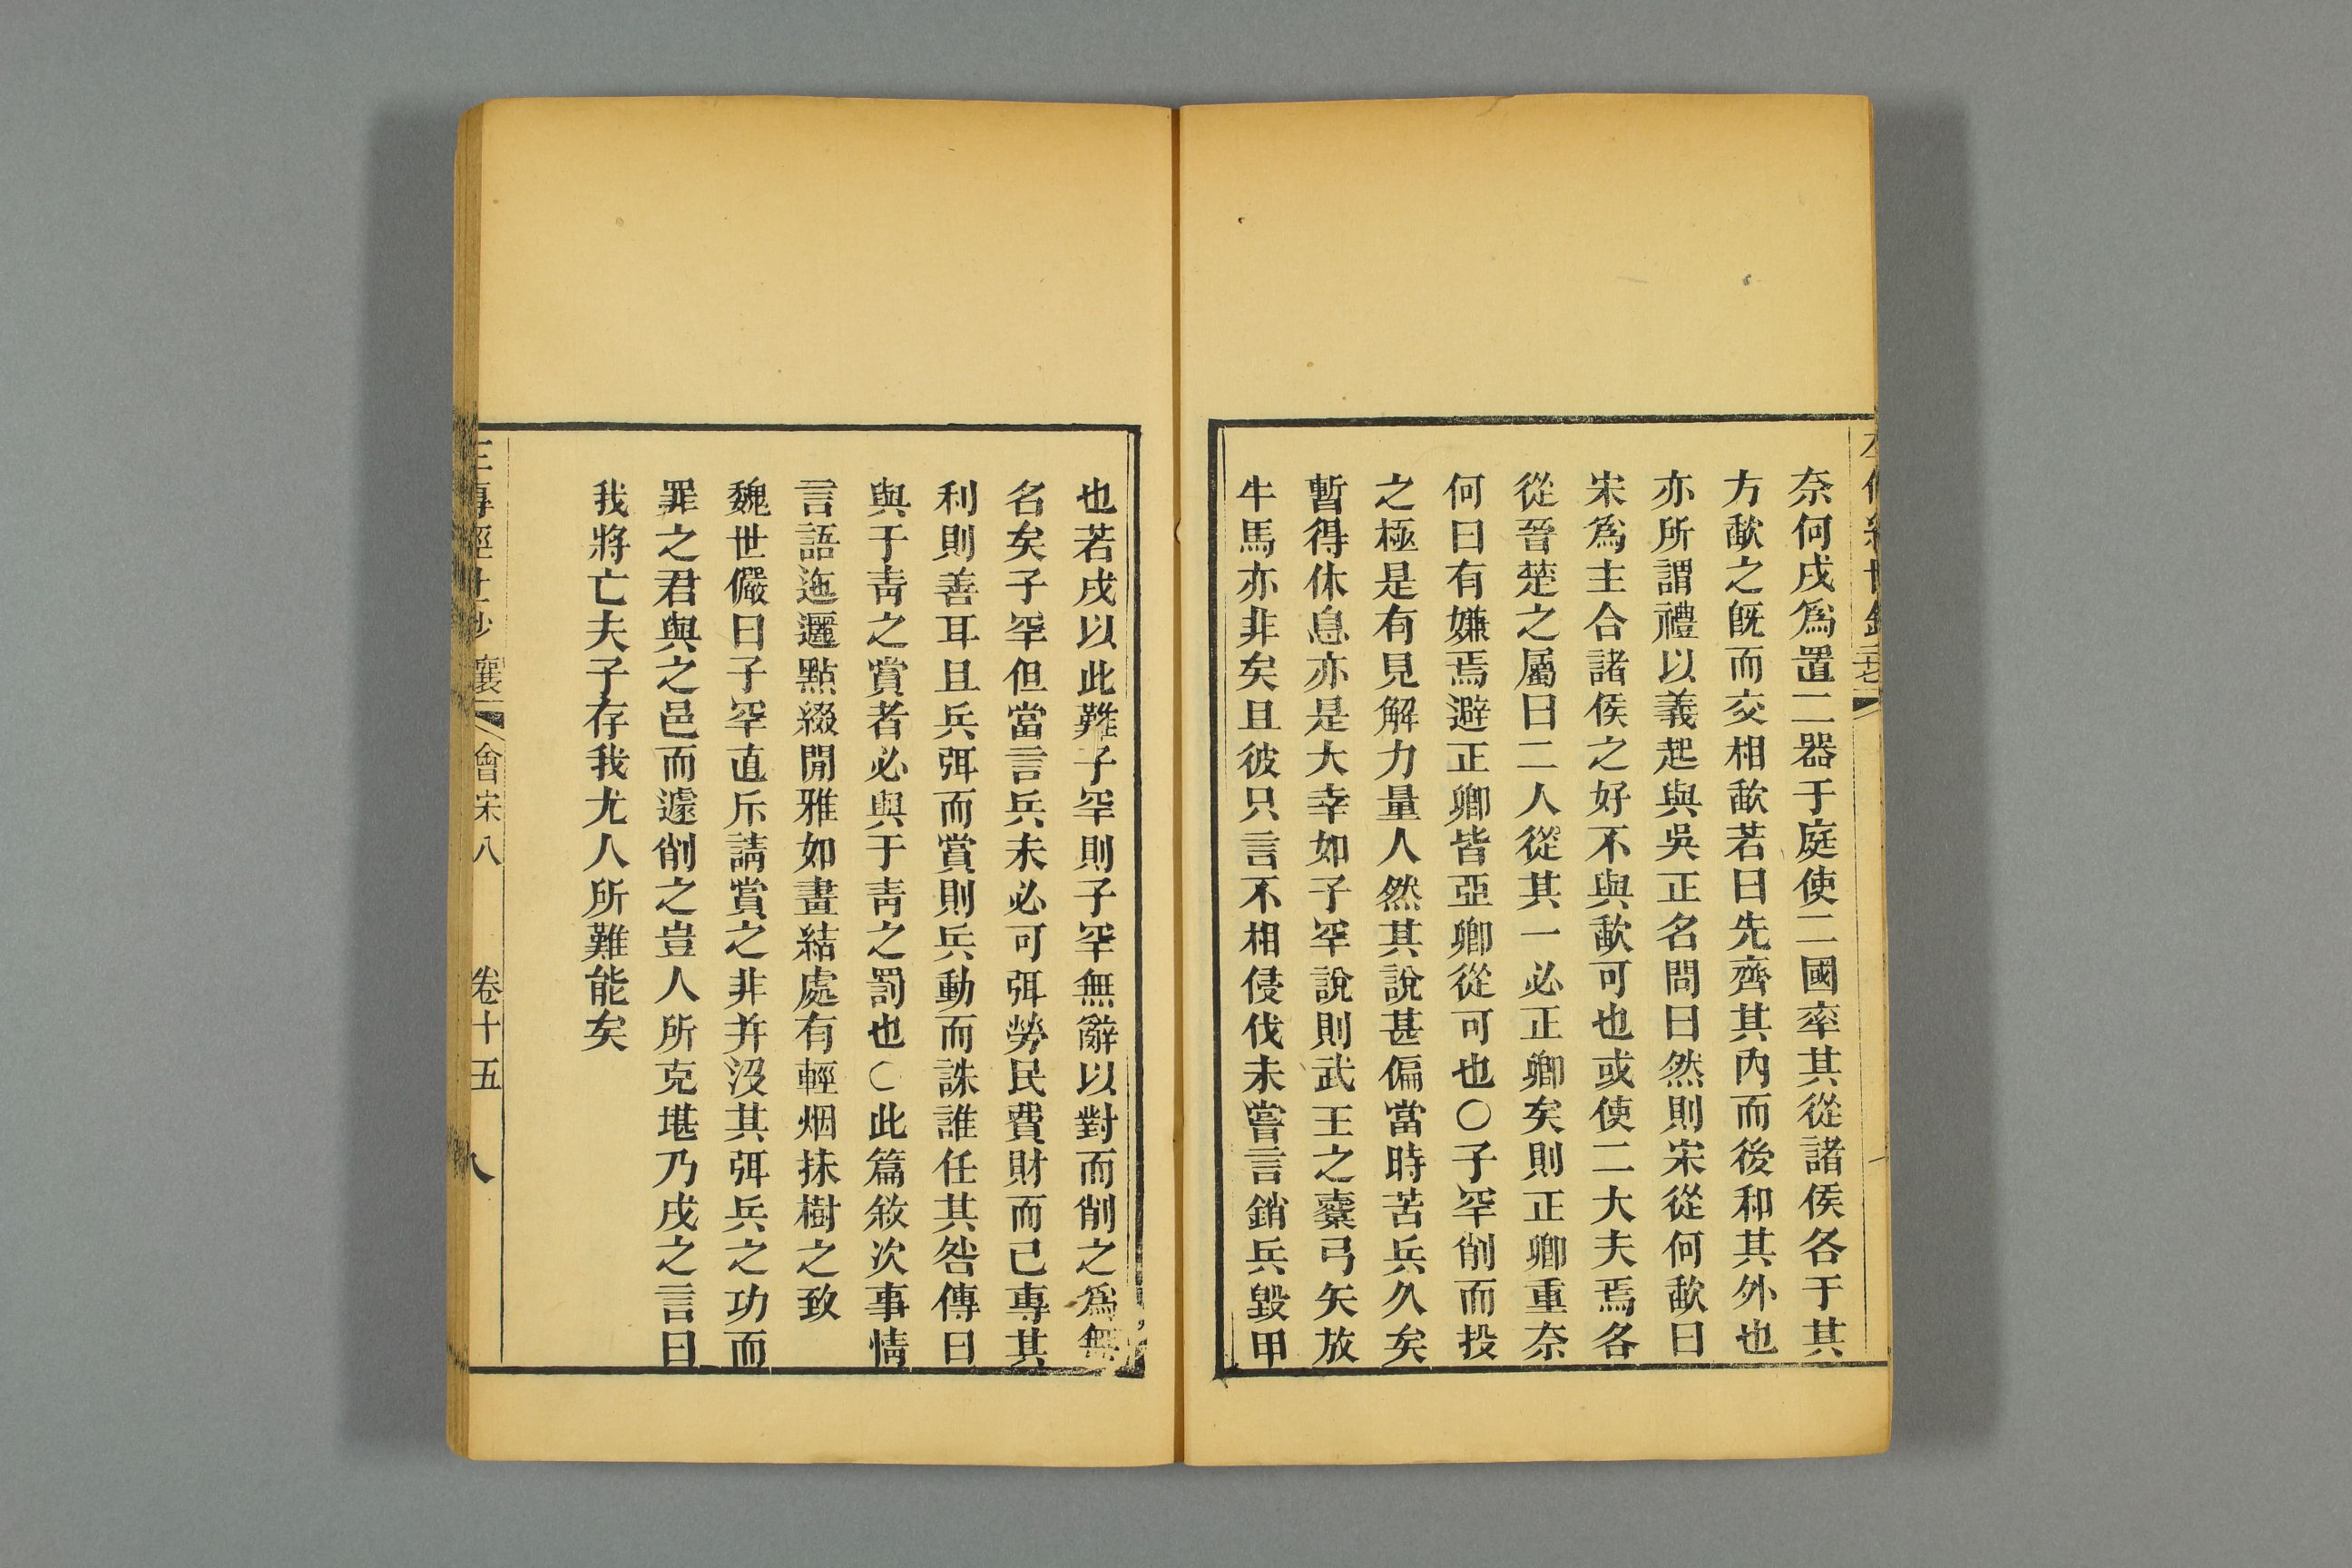 奈何戌爲置二器于庭使二國率其從諸侯各于其
方歃之旣而交相歃若曰先齊其內而後和其外也
亦所謂禮以義起與吳正名問曰然則宋從何歃曰
宋爲主合諸侯之好不與歃可也或使二大夫焉各
從晉楚之屬曰二人從其一必正卿矣則正卿重奈
何曰有嫌焉避正卿皆亞卿從可也〇子罕削而投
之極是有見解力量人然其說甚偏當時苦兵久矣
暫得休息亦是大幸如子罕說則武王之櫜弓矢放
牛馬亦非矣且彼只言不相侵伐未嘗言銷兵毀甲
也若戌以此難子罕則子罕無辭以對而削之爲無
名矣子罕但當言兵未必可弭勞民費財而己專其
利則善耳且兵弭而賞則兵動而誅誰任其咎傳曰
與于靑之賞者必與于靑之罰也〇此篇敘次事情
言語迤邐點綴閒雅如畫結處有輕烟抹樹之致
魏世儼曰子罕直斥請賞之非并沒其弭兵之功而
罪之君與之邑而遽削之豈人所克堪乃戌之言曰
我將亡夫子存我尤人所難能矣
左傳經世鈔 襄 會宋八 卷十五 八